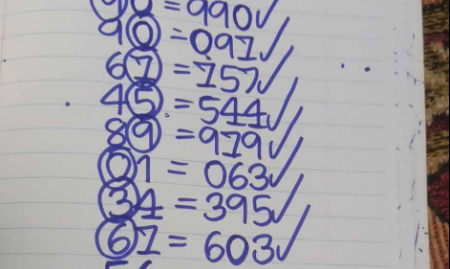 90 = 990✓
90 = 091✓
61 = 157✓
45 = 544✓
89 = 979✓
01 = 063✓
34 = 395✓
61 = 603✓